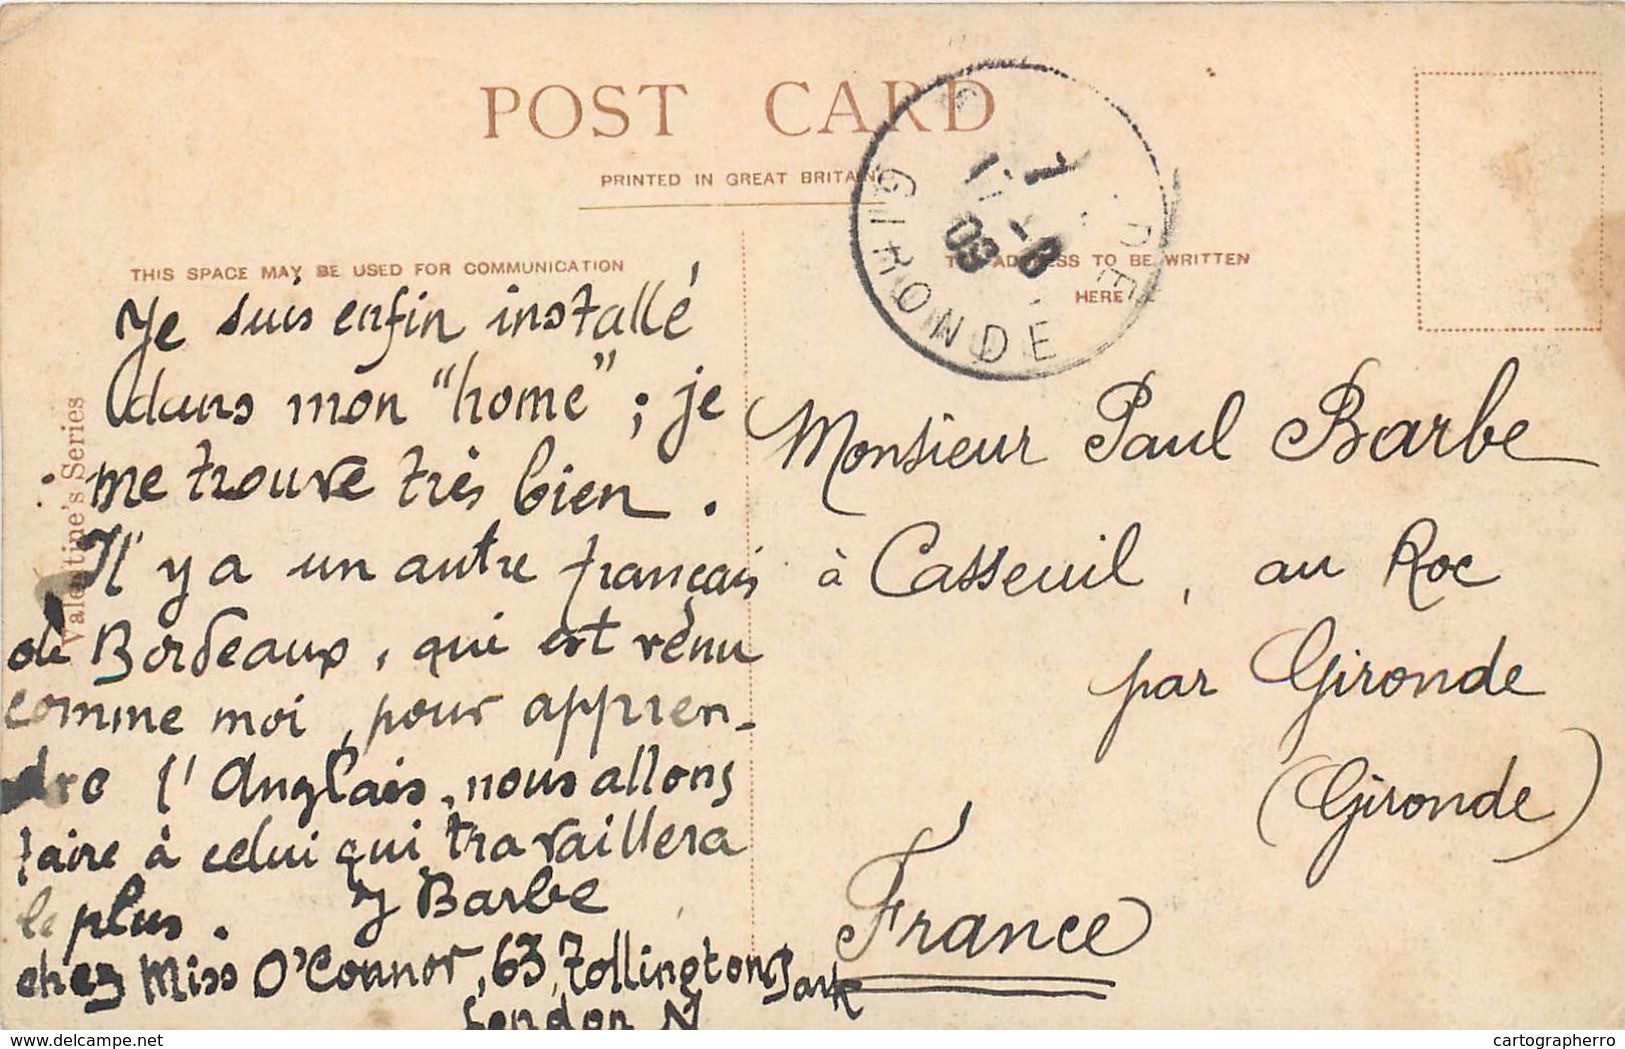 POST CARD
PRINTED IN GREAT BRITAIN
THIS SPACE MAY BE USED FOR COMMUNICATION
TO BE WRITTEN
HERE
Valentine's Series
GIRONDE
DE
09
Je suis enfin installé
dans mon "home" ; je
me trouve très bien .
Il y a un autre français
de Bordeaux, qui est venu
comme moi, pour appren-
dre l'Anglais, nous allons
faire à celui qui travaillera
le plus. J Barbe
chez Miss O'Connor, 63, Tollington Park
London N
Monsieur Paul Barbe
à Casseuil, au Roc
par Gironde
(Gironde)
France
delcampe.net
cartographerro